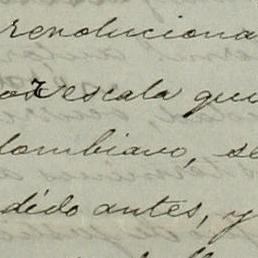 revoluciona
or escala que
lombiano, se
dido antes, y